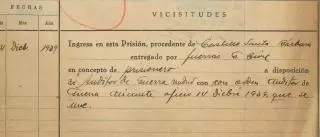 FECHAS
VICISITUDES
Mes
Año
4 Dicb. 1939 Ingresa en esta Prisión, procedente de Castillo Santa Bárbara
entregado por fuerzas G. Civil
en concepto de prisionero a disposición
de Auditor de Guerra con orden Auditor de
Guerra Alicante 14 Dicbre 1939, que se
une.